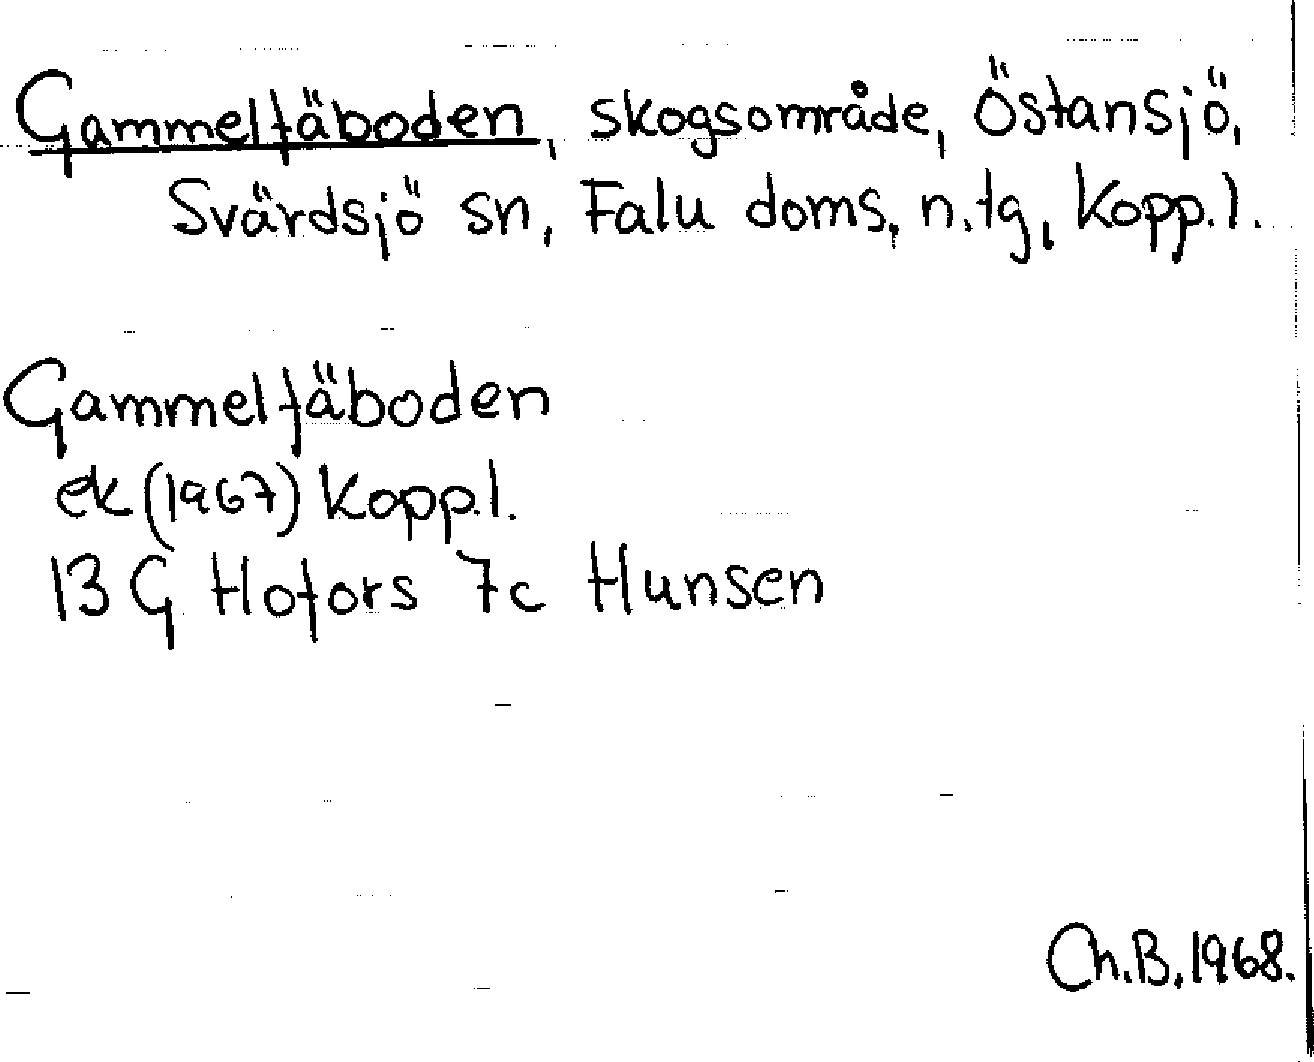 Gammelfäboden, skogsområde, Östansjö,
Svärdsjö sn, Falu doms, n. tg, Kopp.l.
Gammelfäboden
ek (1967) Kopp.l.
13 G Hofors 7c Hunsen
Ch.B. 1968.